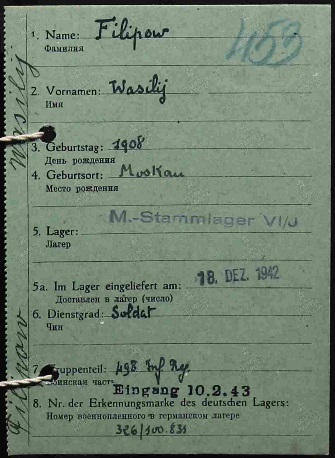 453
1. Name: Filipow
Фамилия
2. Vornamen: Wasilij
Имя
3. Geburtstag: 1908
День рождения
4. Geburtsort: Moskau
Место рождения
M.-Stammlager VI/J
5. Lager:
Лагер
5a. Im Lager eingeliefert am: 18. DEZ. 1942
Доставлен в лагер (число)
6. Dienstgrad: Soldat
Чин
7. Truppenteil: 498 Inf Reg.
Воинская часть
Eingang 10.2.43
8. Nr. der Erkennungsmarke des deutschen Lagers:
Номер военнопленного в германском лагере
326/100.831
Filipow Wasilij